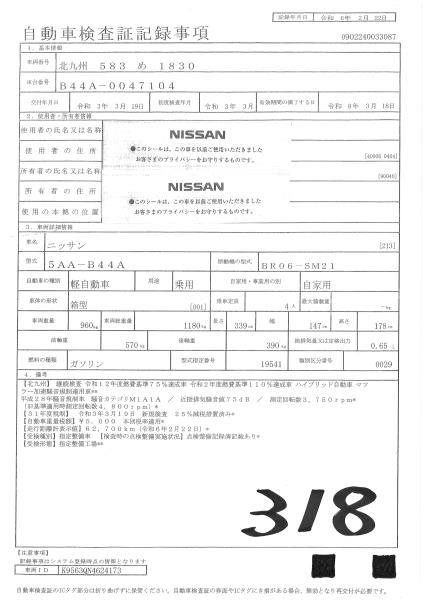 記録年月日 令和 6年 2月 22日
自動車検査証記録事項 0902240033087
1. 基本情報
車両番号 北九州 583 め 1830
車台番号 B44A-0047104
交付年月日 令和 3年 3月19日 初度検査年月 令和 3年 3月 有効期間の満了する日 令和 8年 3月18日
2. 使用者・所有者情報
使用者の氏名又は名称
使用者の住所 [40006 0404]
所有者の氏名又は名称
所有者の住所 [90040]
使用の本拠の位置
NISSAN
●このシールは、この車を以前ご使用いただきました
お客さまのプライバシーをお守りするものです。
NISSAN
●このシールは、この車を以前ご使用いただきました
お客さまのプライバシーをお守りするものです。
3. 車両詳細情報
車名 ニッサン [213]
型式 5AA-B44A 原動機の型式 BR06-SM21
自動車の種別 軽自動車 用途 乗用 自家用・事業用の別 自家用
車体の形状 箱型 [001] 乗車定員 4人 最大積載量 -kg
車両重量 960kg 車両総重量 1180kg 長さ 339cm 幅 147cm 高さ 178cm
前軸重 570kg 後軸重 390kg 総排気量又は定格出力 0.65L
燃料の種類 ガソリン 型式指定番号 19541 類別区分番号 0029
4. 備考
【北九州】 継続検査 令和12年度燃費基準75%達成車 令和2年度燃費基準110%達成車 ハイブリッド自動車 マフ
ラー加速騒音規制適用車**
平成28年騒音規制車 騒音カテゴリM1A1A / 近接排気騒音値75dB / 測定回転数3,750rpm*
(旧基準適用時測定回転数4,800rpm)*
【31年度税制】 令和3年3月19日 新規検査 25%減税措置済み*
【自動車重量税額】 ¥5,000 本則税率適用*
【走行距離計表示値】 62,700km(令和6年2月22日)*
【受検種別】指定整備車 【検査時の点検整備実施状況】点検整備記録簿記載あり*
【受検形態】指定整備工場**
318
【注意事項】
記録事項はシステム登録時点の情報となります
車両ID K9563QN4624173
自動車検査証のICタグ部分は折り曲げずに保管してください。自動車検査証の券面やICタグにき損がある場合、無効となり再交付が必要です。